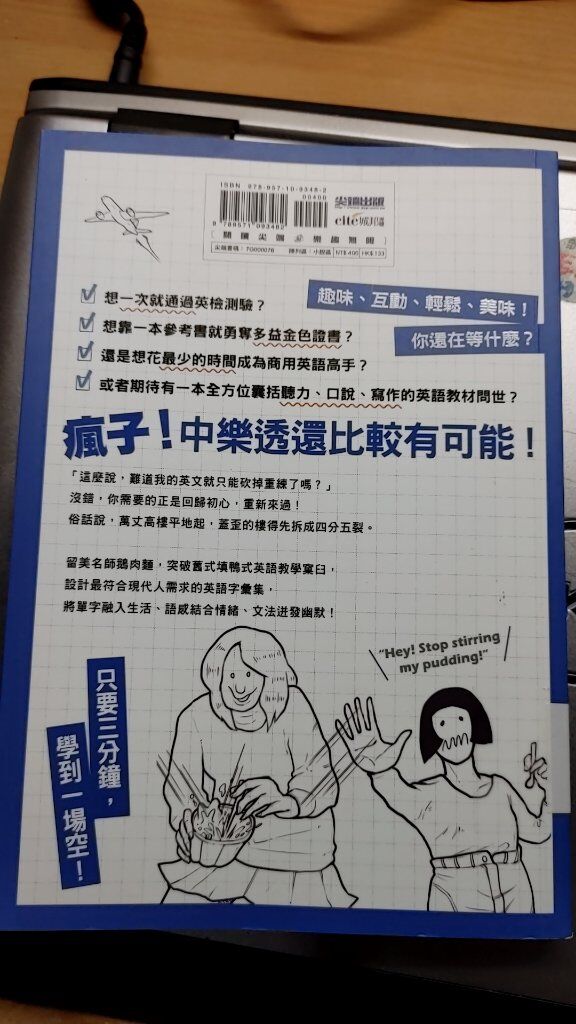 ISBN 978-957-10-9348-2
00400
9 789571 093482
尖端出版
cite城邦
尖端書碼：7G000076
陳列區：小說區
NT$400
HK$133
趣味、互動、輕鬆、美味！
你還在等什麼？
想一次就通過英檢測驗？
想靠一本參考書就勇奪多益金色證書？
還是想花最少的時間成為商用英語高手？
或者期待有一本全方位囊括聽力、口說、寫作的英語教材問世？
瘋子！中樂透還比較有可能！
「這麼說，難道我的英文就只能砍掉重練了嗎？」
沒錯，你需要的正是回歸初心，重新來過！
俗話說，萬丈高樓平地起，蓋歪的樓得先拆成四分五裂。
留美名師鵝肉麵，突破舊式填鴨式英語教學窠臼，
設計最符合現代人需求的英語字彙集，
將單字融入生活、語感結合情緒、文法迸發幽默！
"Hey! Stop stirring
my pudding!"
只要三分鐘，
學到一場空！